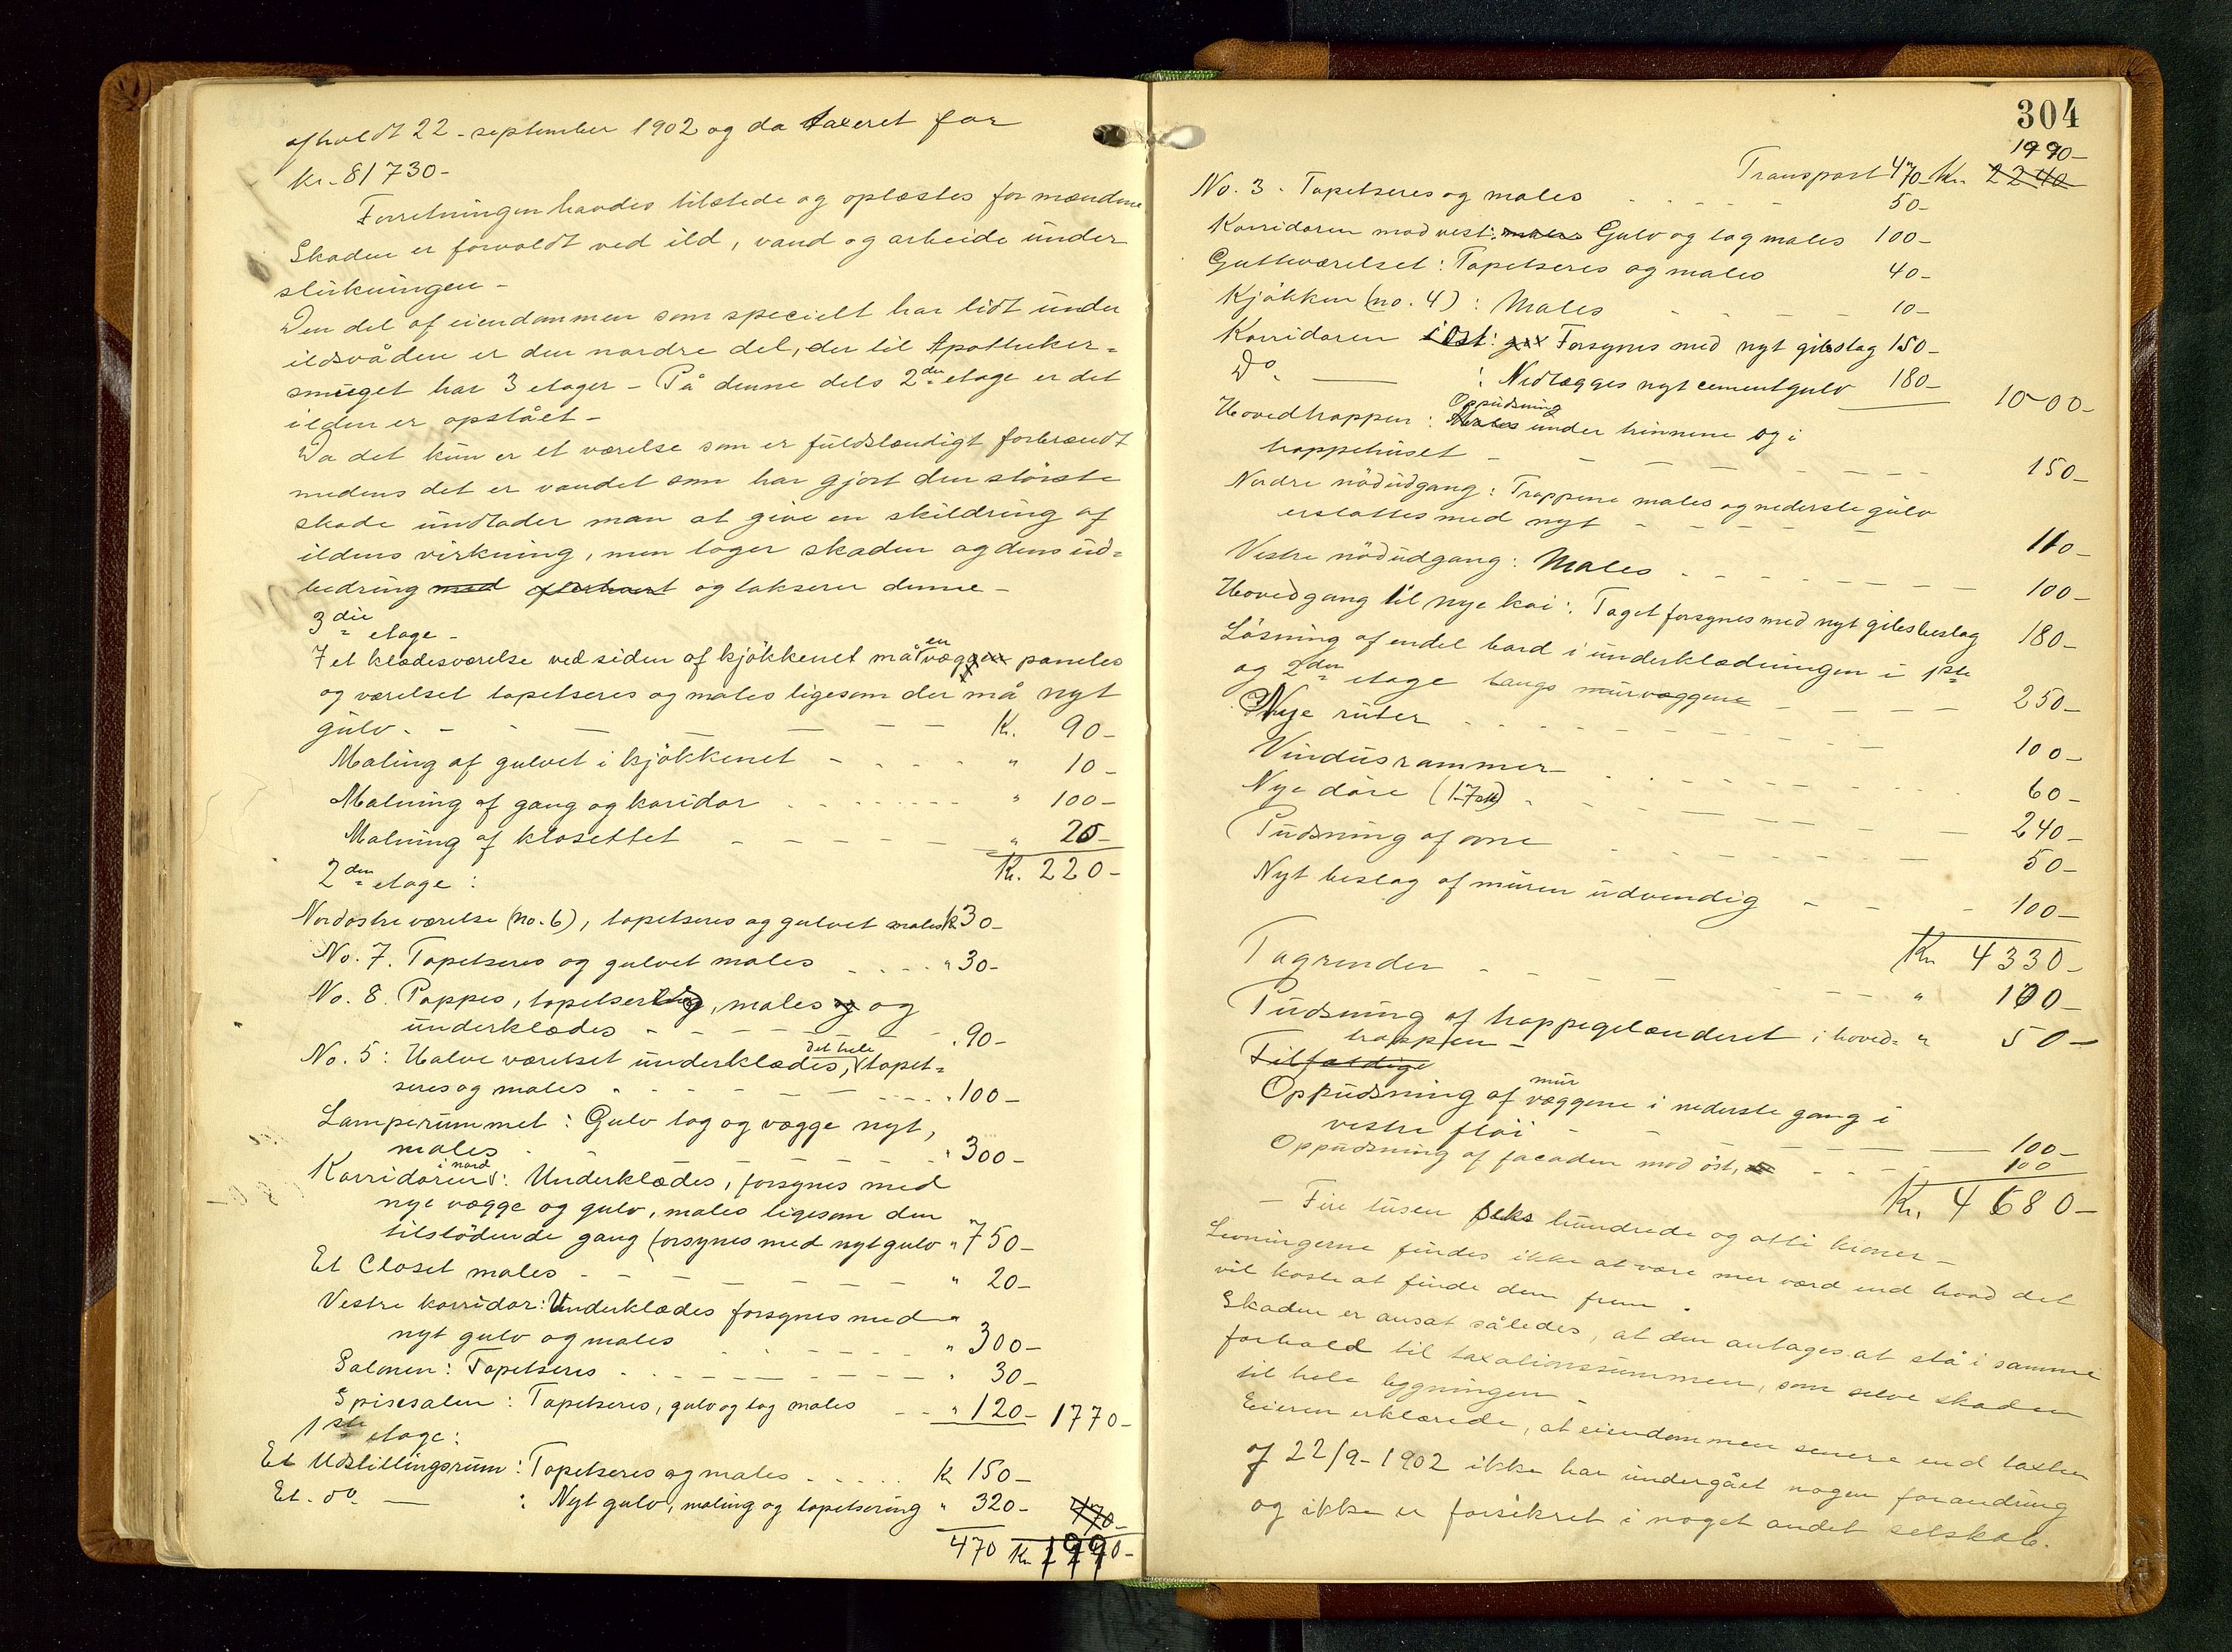 afholdt 22 - september 1902 og da taxeret for
kr. 81730-
Forretningen havdes tilstede og oplæstes for mændene
Skaden er forvoldt ved ild, vand og arbeide under
slukningen -
Den del af eiendommen som specielt har lidt under
ildsvåden er den nordre del, der til Apotheker-
smuget har 3 etager - På denne dels 2den etage er det
ilden er opstået -
Da det kun er et værelse som er fuldstændigt forbrændt
medens det er vandet som har gjort den største
skade undlader man at give en skildring af
ildens virkning, men tager skaden og dens ud-
bedring med efterhvert og takserer denne -
3die etage -
I et klædesværelse ved siden af kjøkkenet må en væg paneles
og værelset tapetseres og males ligesom der må nyt
gulv. - - - - - - Kr. 90-
Maling af gulvet i kjøkkenet - - - - " 10-
Malning af gang og koridor - - - - " 100-
Malning af klosettet - - - - - " 20-
Kr. 220-
2den etage:
Nordøstre værelse (no. 6), tapetseres og gulvet males k 30-
No. 7. Tapetseres og gulvet males - - - - " 30-
No. 8. Pappes, tapetseres, males og og
underklædes - - - - - - " 90-
No. 5: Halve værelset underklædes, det hele tapet-
seres og males - - - - - - " 100-
Lamperummet: Gulv tag og vægge nyt,
males - - - - - - " 300-
Korridoren i nord: Underklædes, forsynes med
nye vægge og gulv, males ligesom den
tilstødende gang forsynes med nyt gulv " 750-
Et Closet males - - - - - - " 20-
Vestre korridor: Underklædes forsynes med
nyt gulv og males - - - - - " 300-
Salonen: Tapetseres - - - - - - " 30-
Spisesalen: Tapetseres, gulv og tag males - - " 120- 1770-
1ste etage:
Et Udstillingsrum: Tapetseres og males - - - - K 150-
Et. do. — : Nyt gulv, maling og tapetsering " 320- 470-
470 Kr. 1990-
304
1990-
Transport 470- Kr. 2240
No. 3. Tapetseres og males - - - - - 50-
Korridoren mod vest: males Gulv og tag males 100-
Gutteværelset: Tapetseres og males 40-
Kjøkken (no. 4): Males - - - - 10-
Korridoren i øst: Forsynes med nyt gibstag 150-
Do. — : Nedlægges nyt cementgulv 180- 1000-
Hovedtrappen: Males Oppudsning under trinnene og i
trappehuset - - - - - - - 150-
Nordre nødudgang: Trappene males og nederste gulv
erstattes med nyt - - - - - 110-
Vestre nødudgang: Males - - - - - - 100-
Hovedgang til nye kai: Taget forsynes med nyt gibsbeslag 180-
Løsning af endel bord i underklædningen i 1ste
og 2den etage langs murvæggene - - - - 250-
Nye ruter - - - - - - - 100-
Vindusrammer - - - - - - 60-
Nye døre (17 stk) - - - - - - 240-
Pudsning af ovne - - - - - - 50-
Nyt beslag af muren udvendig - - - 100-
Kr 4330-
Tagrender - - - - - - - " 100-
Pudsning af trappegelænderet i hoved- " 50-
trappen -
Tilfældige
Oppudsning af mur væggene i nederste gang i
vestre fløi - - - - - - 100-
Oppudsning af facaden mod øst, - - - 100
Kr. 4680-
- Fire tusen seks hundrede og otti kroner -
Levningerne findes ikke at være mer værd end hvad det
vil koste at finde dem frem.
Skaden er ansat således, at den antages at stå i samme
forhold til taxationssummen, som selve skaden
til hele bygningen -
Eieren erklærede, at eiendommen senere end taxten
af 22/9-1902 ikke har undergået nogen forandring
og ikke er forsikret i noget andet selskab.